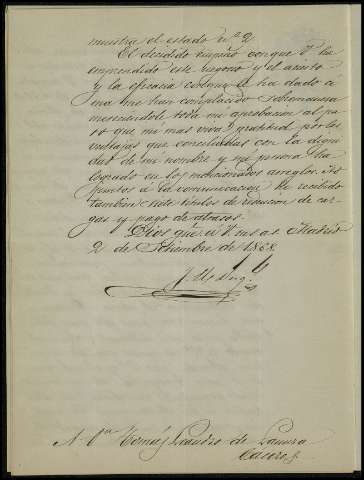 muestra el estado nº 2
El decidido empeño con que V. ha
emprendido este negocio y el acierto
y la eficacia con que le ha dado ci
ma me han complacido sobremanera
mereciéndole toda mi aprobación al pa
so que mi mas viva gratitud por las
ventajas que conciliadas con la digni
dad de mi nombre y mi persona ha
logrado en los mencionados arreglos.
juntos a la comunicacion he recibido
tambien siete titulos de redencion de car
gas y pago de atrasos.
Dios gue. á V. m. as. Madrid
2 de Setiembre de 1868
A Dn. Tomás Leandro de
Caceres